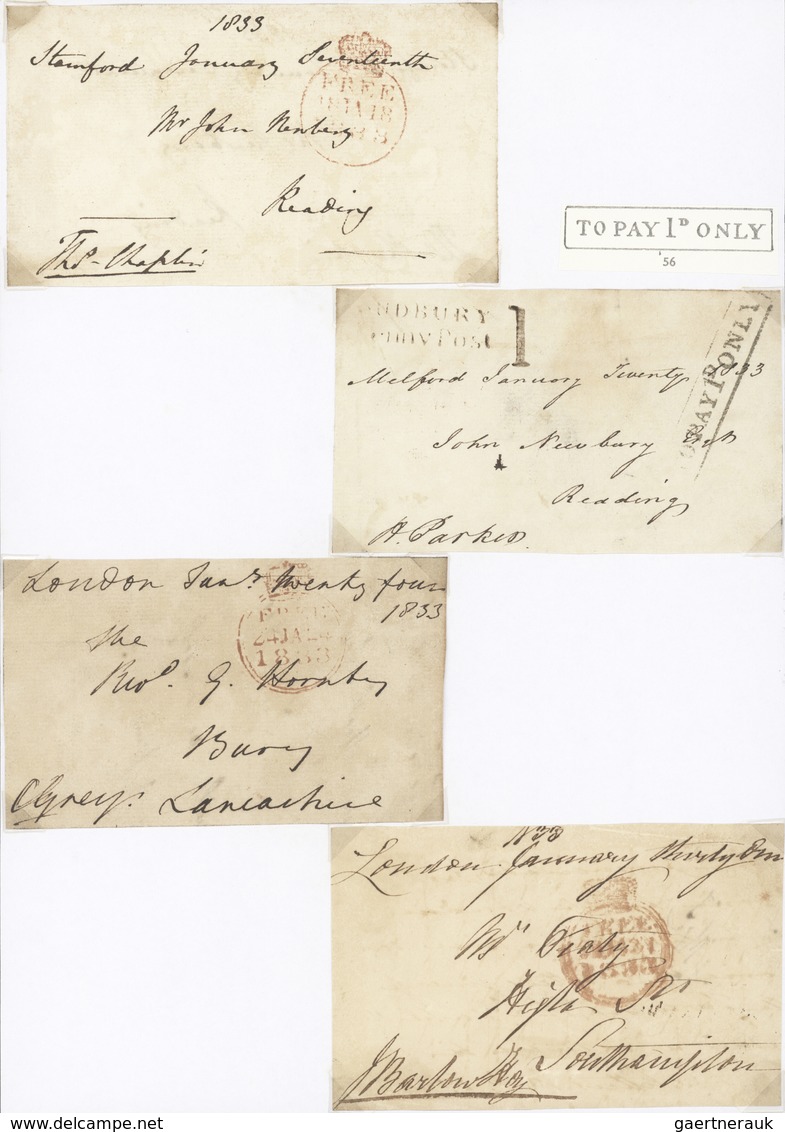 1833
Stamford January Seventeenth
FREE
18 JA 18
Mr John Newbery
Reading
Thos. Chaplin
TO PAY 1D ONLY
'56
UDBURY
enny Post
1
TO PAY 1D ONLY
Melford January Twenty 1833
John Newbury
Reading
H. Parker
London Jany. twenty four
1833
FREE
24 JA 24
1833
The
Revd. G. Hornby
Bury
CGrey. Lancashire
1833
London January thirty One
FREE
1833
High St
Southampton
JBarlow Hoy
gaertnerauk